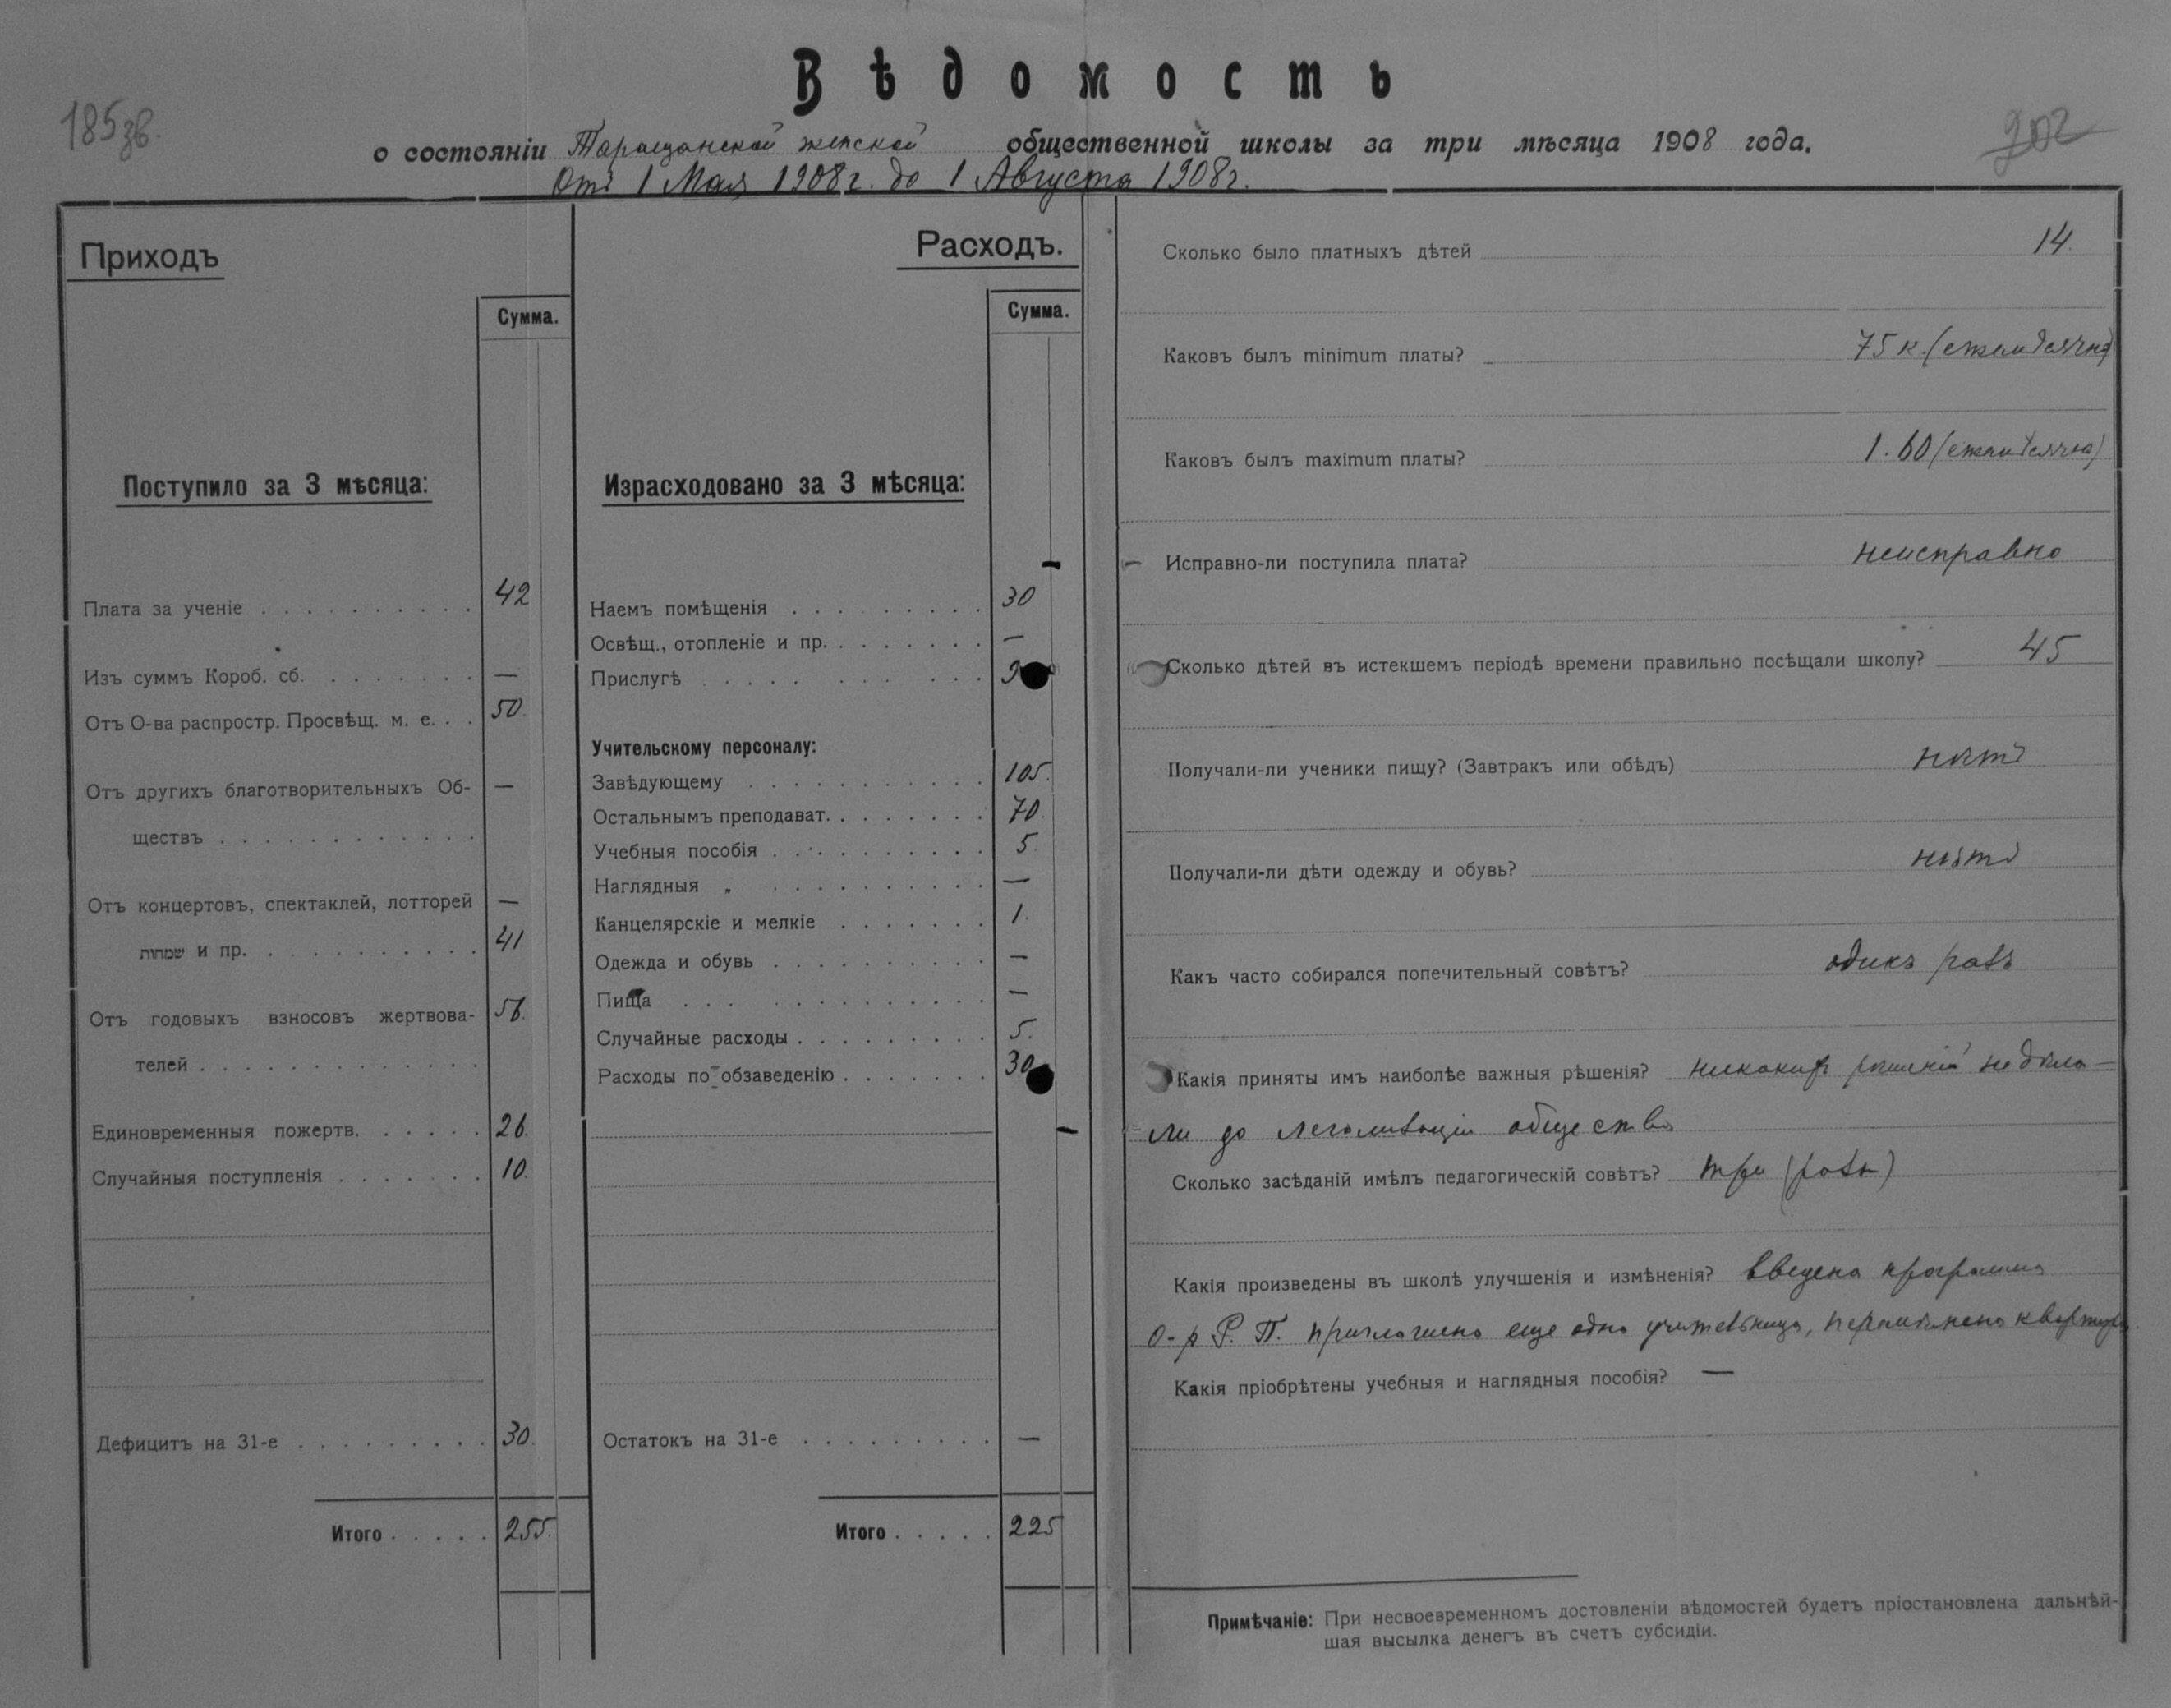 Вѣдомость
185 зв.
202
о состояніи Таращанской женской общественной школы за три мѣсяца 1908 года.
Отъ 1 Мая 1908 г. до 1 Августа 1908 г.
Приходъ
Сумма.
Поступило за 3 мѣсяца:
Плата за ученіе . . . . . . . . . . 42
Изъ суммъ Короб. сб. . . . . . . . —
Отъ О-ва распростр. Просвѣщ. м. е. . . 50.
Отъ другихъ благотворительныхъ Об- —
ществъ . . . . . . . . . . . .
Отъ концертовъ, спектаклей, лотторей —
שמחות и пр. . . . . . . . . . . 41
Отъ годовыхъ взносовъ жертвова- 56.
телей . . . . . . . . . . . . .
Единовременныя пожертв. . . . . . 26.
Случайныя поступленія . . . . . . . 10.
Дефицитъ на 31-е . . . . . . . . . 30.
Итого . . . . . 255.
Расходъ.
Сумма.
Израсходовано за 3 мѣсяца:
Наемъ помѣщенія . . . . . . . . . 30
Освѣщ., отопленіе и пр. . . . . . . . —
Прислугѣ . . . . . . . . . . . 9
Учительскому персоналу:
Завѣдующему . . . . . . . . . . . 105.
Остальнымъ преподават. . . . . . . . 70.
Учебныя пособія . . . . . . . . . . 5.
Наглядныя „ . . . . . . . . . . —
Канцелярскіе и мелкіе . . . . . . . 1.
Одежда и обувь . . . . . . . . . . —
Пища . . . . . . . . . . . . . —
Случайные расходы . . . . . . . . . 5.
Расходы по обзаведенію . . . . . . . 30
Остатокъ на 31-е . . . . . . . . . —
Итого . . . . . 225
Сколько было платныхъ дѣтей 14.
Каковъ былъ minimum платы? 75 к. (ежемѣсячно)
Каковъ былъ maximum платы? 1.60 (ежемѣсячно)
Исправно-ли поступила плата? неисправно
Сколько дѣтей въ истекшемъ періодѣ времени правильно посѣщали школу? 45
Получали-ли ученики пищу? (Завтракъ или обѣдъ) нѣтъ
Получали-ли дѣти одежду и обувь? нѣтъ
Какъ часто собирался попечительный совѣтъ? одинъ разъ
Какія приняты имъ наиболѣе важныя рѣшенія? никакихъ рѣшеній не дѣла-
ли до легализаціи общества
Сколько засѣданій имѣлъ педагогическій совѣтъ? три (раза)
Какія произведены въ школѣ улучшенія и измѣненія? введена программа
О-ва Р. П. приглашена еще одна учительница, перемѣнена квартира
Какія пріобрѣтены учебныя и наглядныя пособія? —
Примѣчаніе: При несвоевременномъ достовленіи вѣдомостей будетъ пріостановлена дальнѣй-
шая высылка денегъ въ счетъ субсидіи.